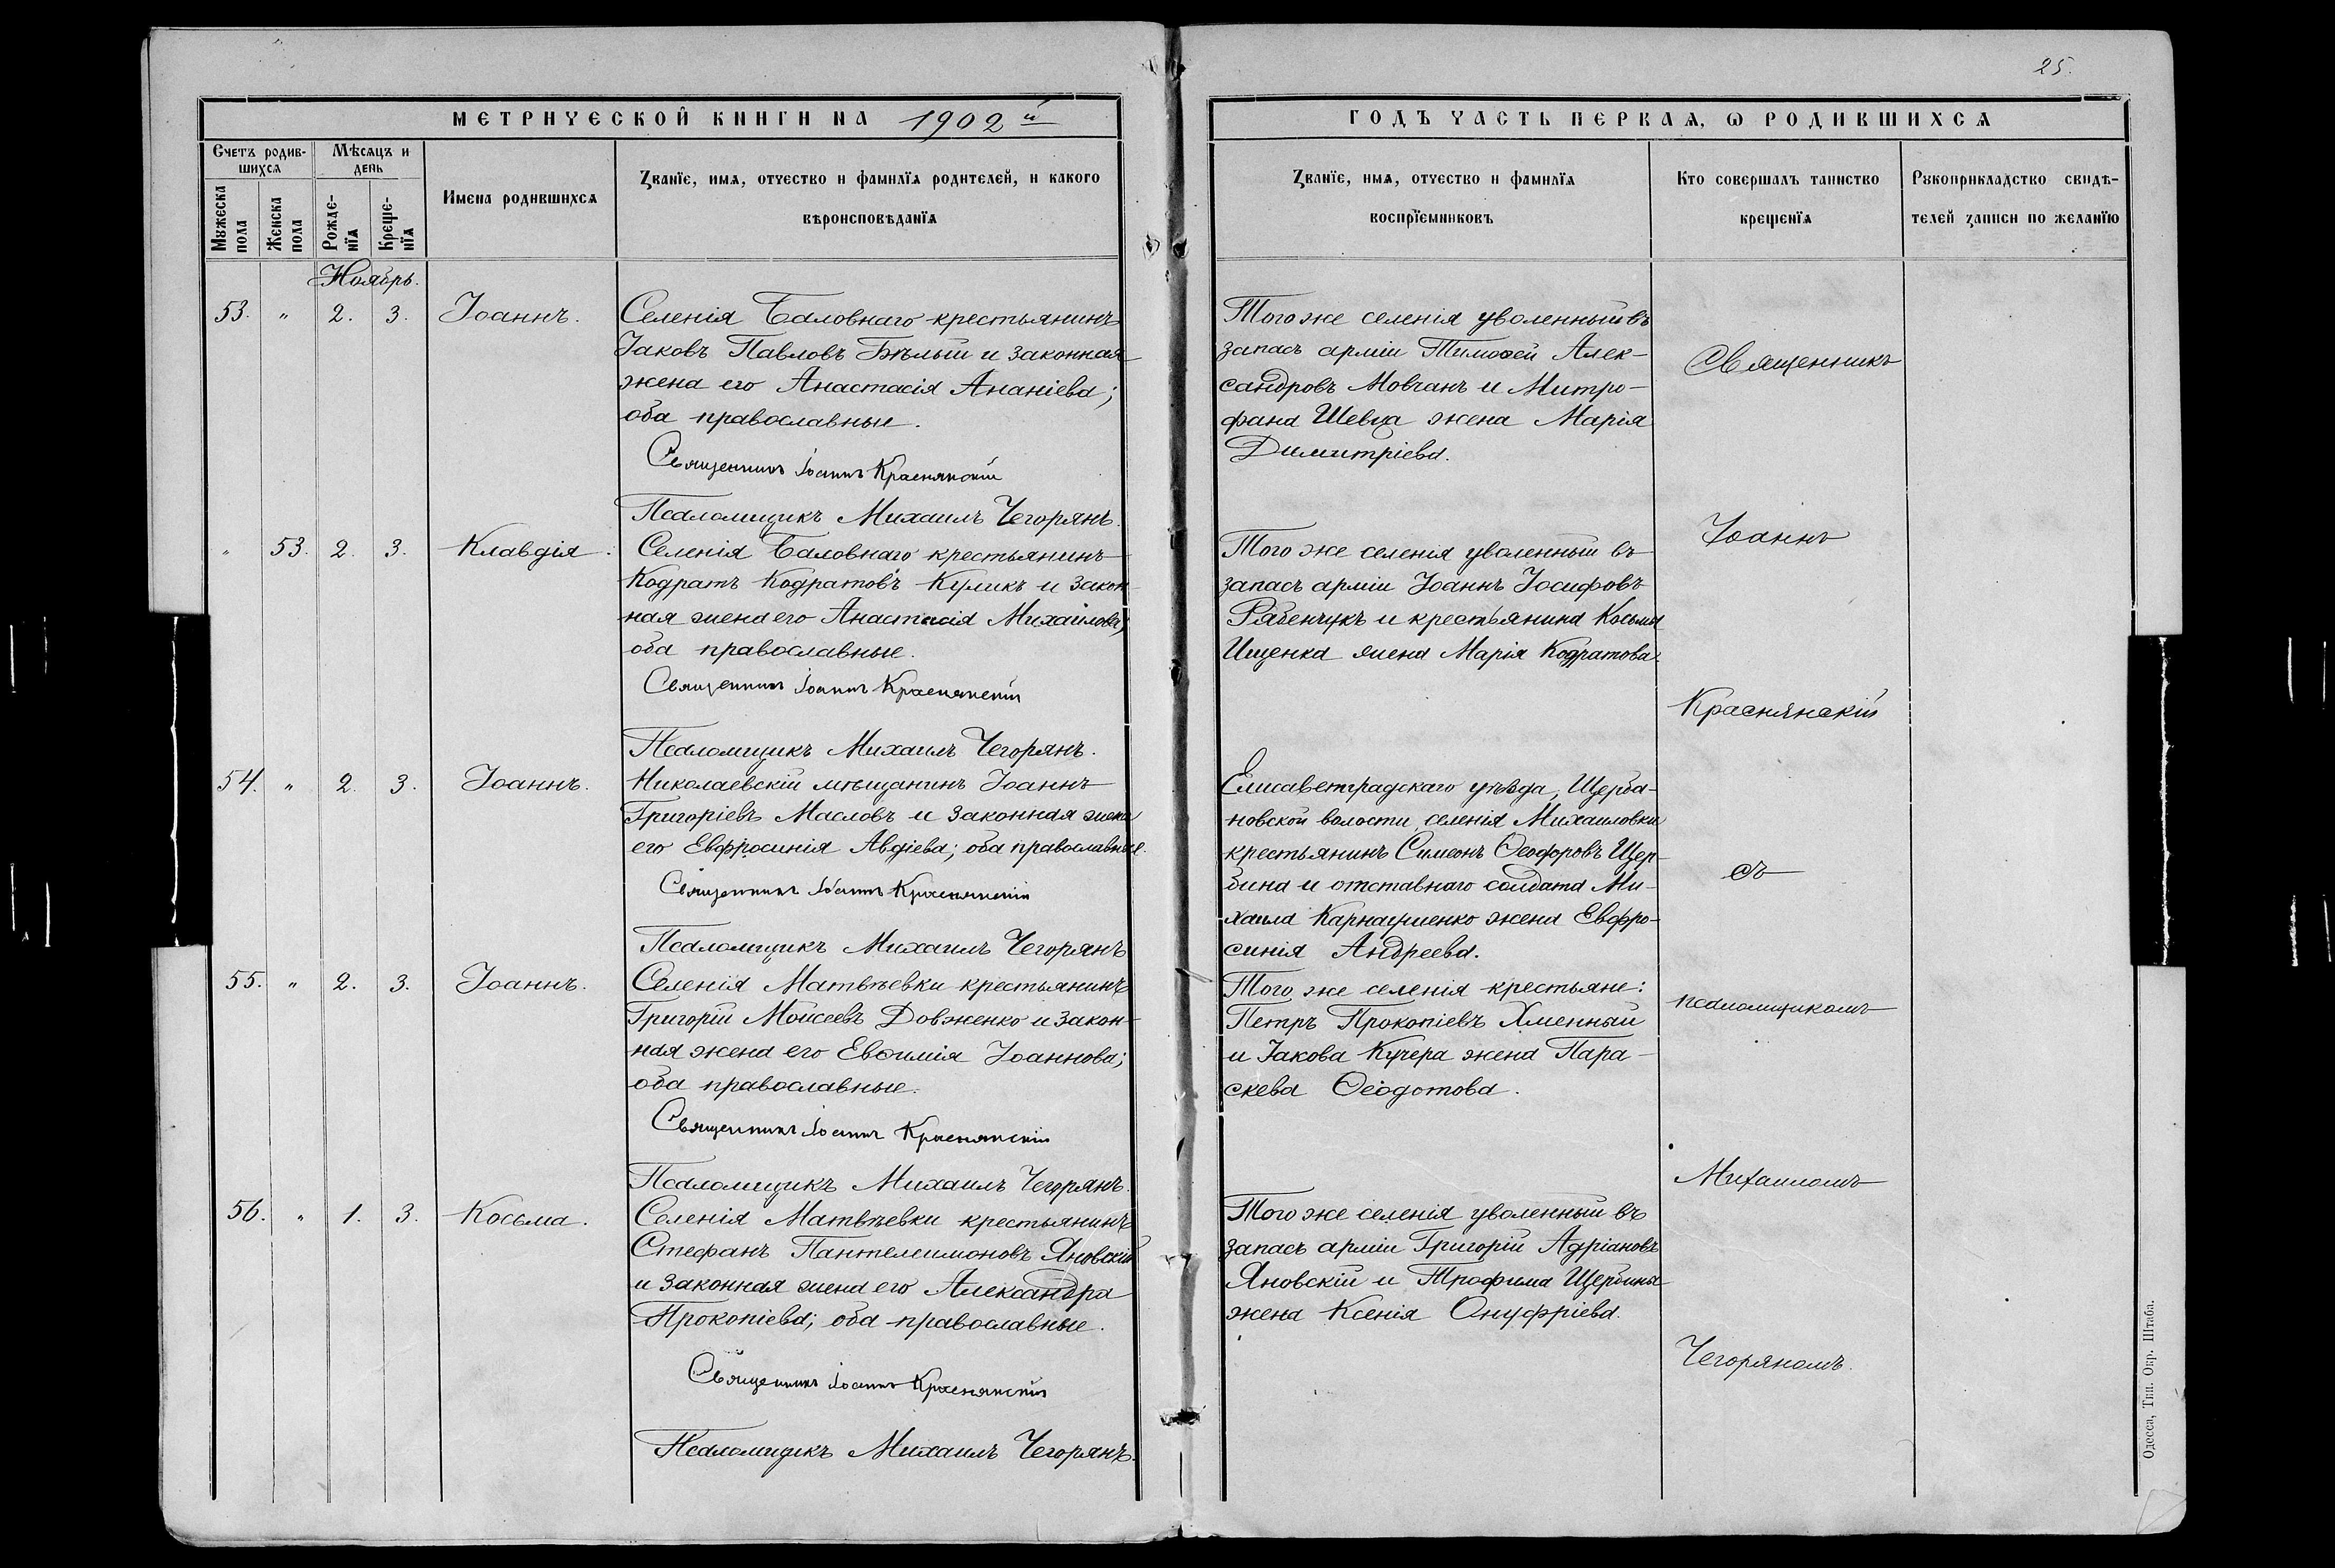 25.
МЕТРИЧЕСКОЙ КНИГИ НА 1902й
ГОДЪ ЧАСТЬ ПЕРВАЯ, Ѡ РОДИВШИХСЯ
Счетъ родив-
шихся
Мѣсяцъ и
день
Мужеска
пола
Женска
пола
Рожде-
нїя
Креще-
нїя
Имена родившихся
Званїе, имя, отчество и фамилїя родителей, и какого
вѣроисповѣданїя
Званїе, имя, отчество и фамилїя
воспрїемниковъ
Кто совершалъ таинство
крещенїя
Рукоприкладство свидѣ-
телей записи по желанїю
Ноябрь.
53. " 2. 3. Іоаннъ.
Селенія Баловнаго крестьянинъ
Іаковъ Павловъ Бѣлый и законная
жена его Анастасія Ананіева;
оба православные.
Священникъ Іоаннъ Краснянскій
Псаломщикъ Михаилъ Чегорянъ.
Того же селенія уволенный въ
запасъ арміи Тимоѳей Алек-
сандровъ Мовчанъ и Митро-
фана Шевца жена Марія
Димитріева.
" 53. 2. 3. Клавдія.
Селенія Баловнаго крестьянинъ
Кодратъ Кодратовъ Куликъ и закон-
ная жена его Анастасія Михайлова;
оба православные.
Священникъ Іоаннъ Краснянскій
Псаломщикъ Михаилъ Чегорянъ.
Того же селенія уволенный въ
запасъ арміи Іоаннъ Іосифовъ
Рябенчукъ и крестьянина Косьмы
Ищенка жена Марія Кодратова.
54. " 2. 3. Іоаннъ.
Николаевскій мѣщанинъ Іоаннъ
Григоріевъ Масловъ и законная жена
его Евфросинія Авдіева; оба православные.
Священникъ Іоаннъ Краснянскій
Псаломщикъ Михаилъ Чегорянъ
Елисаветградскаго уѣзда, Щерба-
новской волости селенія Михайловки
крестьянинъ Симеонъ Ѳеодоровъ Щер-
бина и отставнаго солдата Ми-
хаила Карнаушенко жена Евфро-
синія Андреева.
55. " 2. 3. Іоаннъ.
Селенія Матвѣевки крестьянинъ
Григорій Моисеевъ Довженко и закон-
ная жена его Евѳимія Іоаннова;
оба православные.
Священникъ Іоаннъ Краснянскій
Псаломщикъ Михаилъ Чегорянъ.
Того же селенія крестьяне:
Петръ Прокопіевъ Хменный
и Іакова Кучера жена Пара-
скева Ѳеодотова.
56. " 1. 3. Косьма.
Селенія Матвѣевки крестьянинъ
Стефанъ Пантелеимоновъ Яновскій
и законная жена его Александра
Прокопіева; оба православные.
Священникъ Іоаннъ Краснянскій
Псаломщикъ Михаилъ Чегорянъ.
Того же селенія уволенный въ
запасъ арміи Григорій Адріановъ
Яновскій и Трофима Щербины
жена Ксенія Онуфріева.
Священникъ
Іоаннъ
Краснянскій
съ
псаломщикомъ
Михаиломъ
Чегоряномъ.
Одесса, Тип. Окр. Штаба.